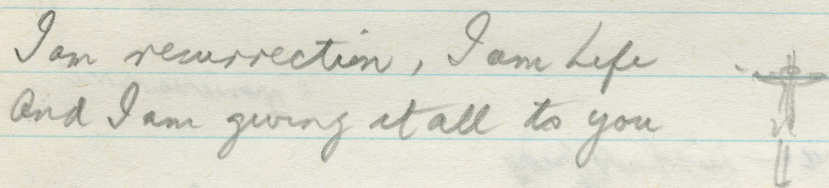 I am resurrection, I am Life
And I am giving it all to you